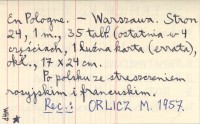 En Pologne. — Warszawa. Stron
24, 1 m., 35 tabl. (ostatnia w 4
częściach, 1 luźna karta (errata),
okł., 17 x 24 cm.
Po polsku ze streszczeniem
rosyjskim i francuskim.
Rec.: ORLICZ M. 1957.